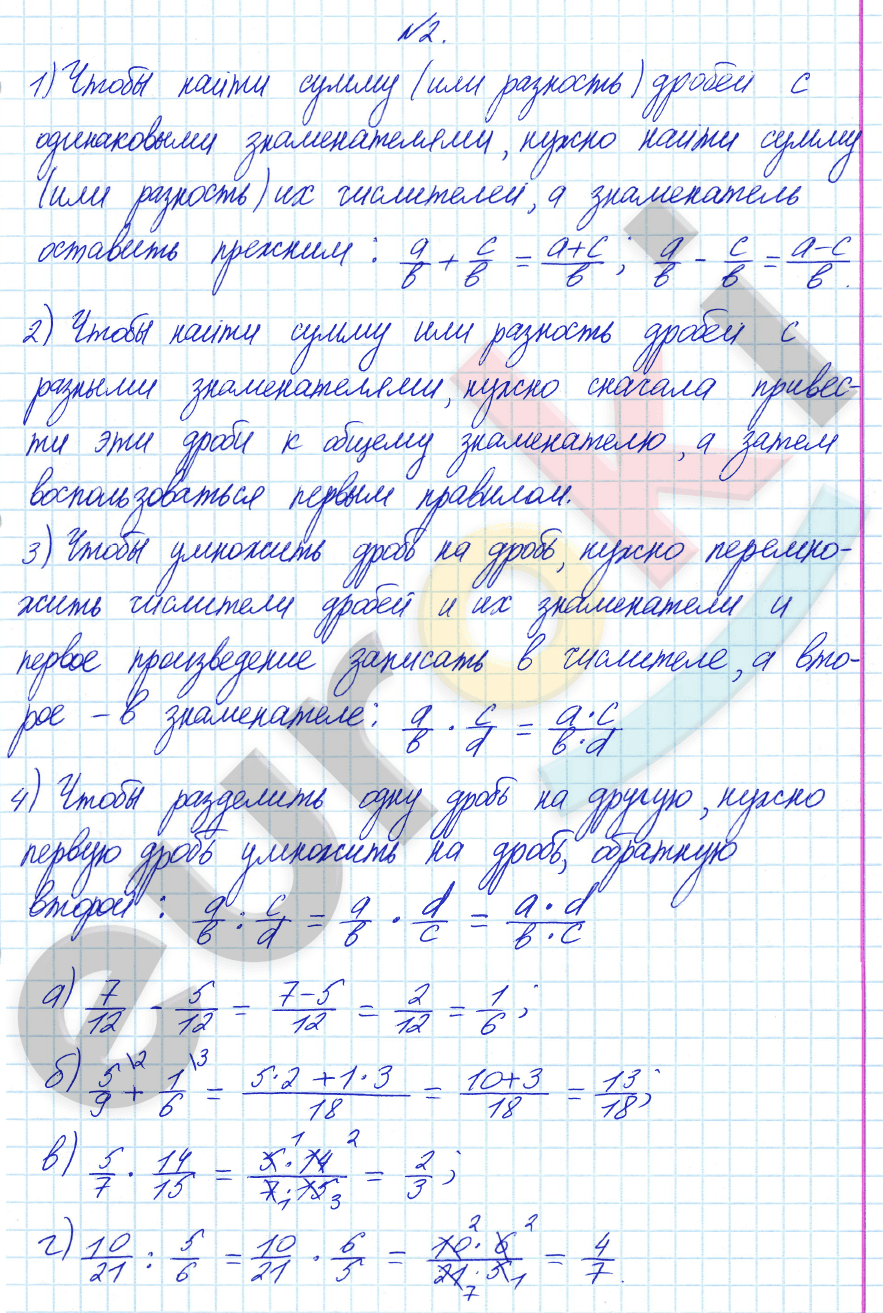 №2.
1) Чтобы найти сумму (или разность) дробей с
одинаковыми знаменателями, нужно найти сумму
(или разность) их числителей, а знаменатель
оставить прежним: a/b + c/b = a+c/b; a/b - c/b = a-c/b.
2) Чтобы найти сумму или разность дробей с
разными знаменателями, нужно сначала привес-
ти эти дроби к общему знаменателю, а затем
воспользоваться первым правилом.
3) Чтобы умножить дробь на дробь, нужно перемно-
жить числители дробей и их знаменатели и
первое произведение записать в числителе, а вто-
рое – в знаменателе: a/b · c/d = a·c/b·d
4) Чтобы разделить одну дробь на другую, нужно
первую дробь умножить на дробь, обратную
второй: a/b : c/d = a/b · d/c = a·d/b·c
а) 7/12 - 5/12 = 7-5/12 = 2/12 = 1/6;
б) 5/9 \2 + 1/6 \3 = 5·2+1·3/18 = 10+3/18 = 13/18;
в) 5/7 · 14/15 = 5 1 · 14 2/7 1 · 15 3 = 2/3;
г) 10/21 : 5/6 = 10/21 · 6/5 = 10 2 · 6 2/21 7 · 5 1 = 4/7.
euroki